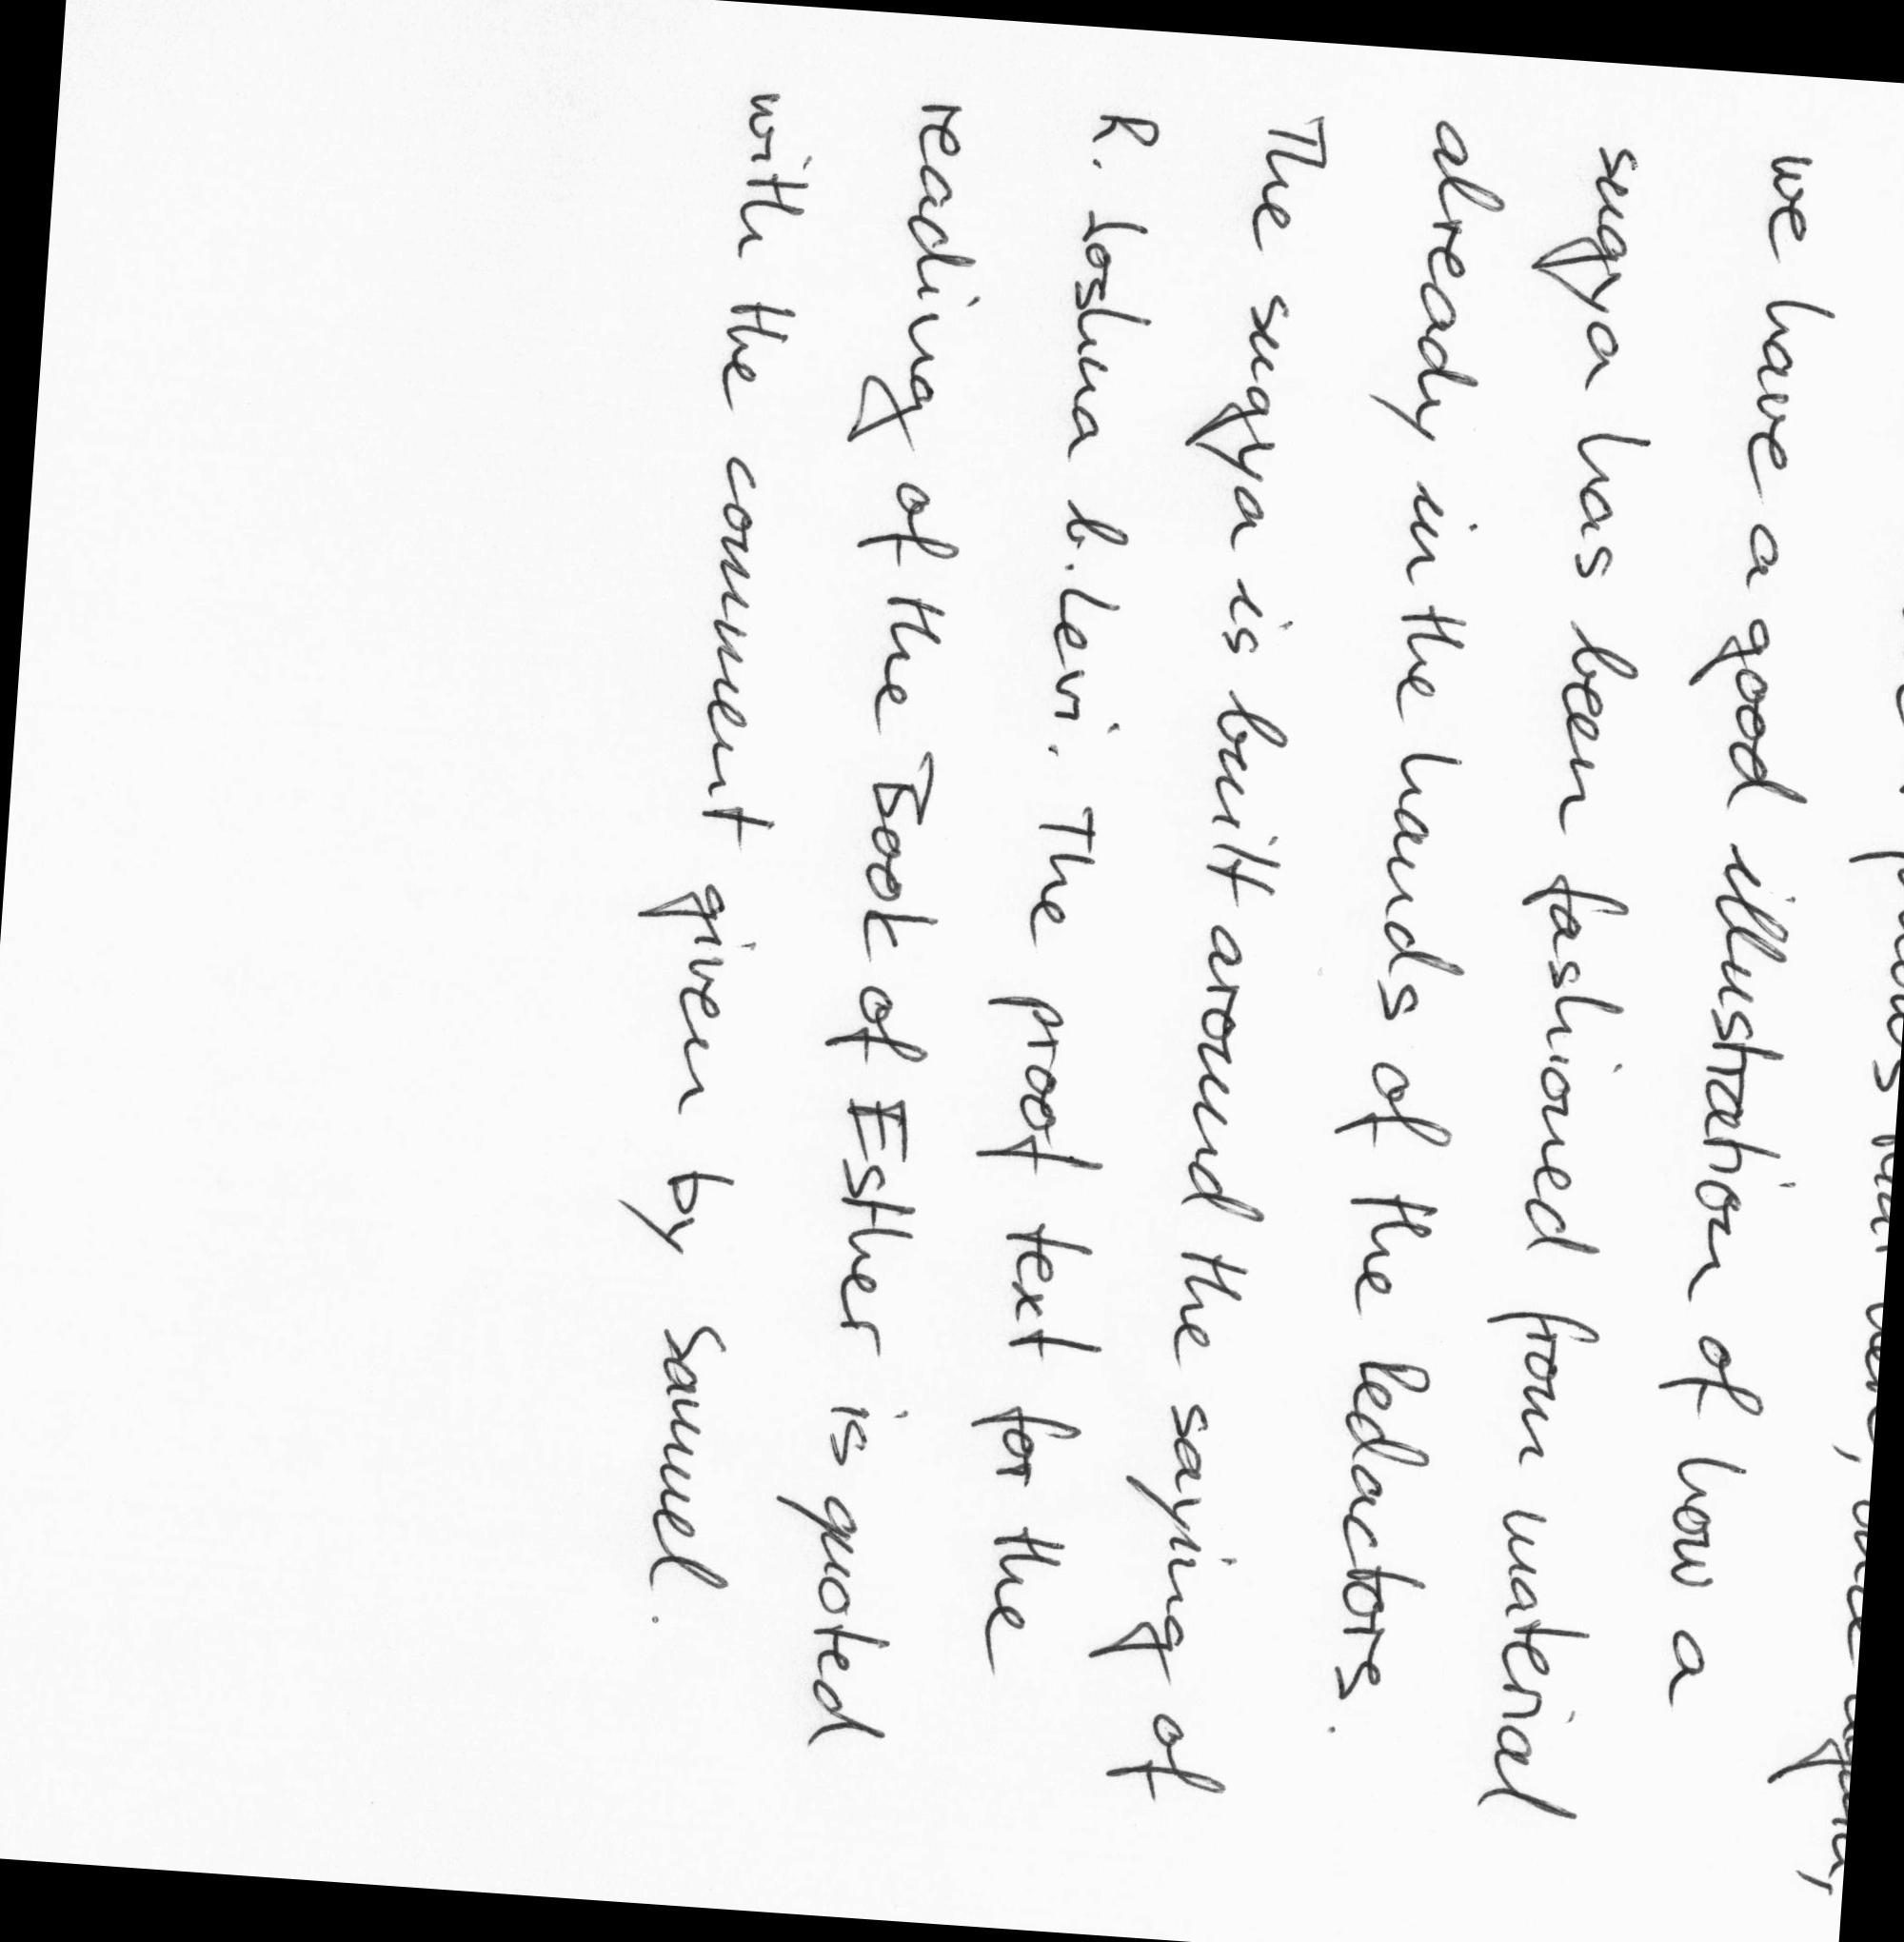 we have a good illustration of how a
sugya has been fashioned from material
already in the hands of the Redactors.
The sugya is built around the saying of
R. Joshua b. Levi. The proof text for the
reading of the Book of Esther is quoted
with the comment given by Samuel.